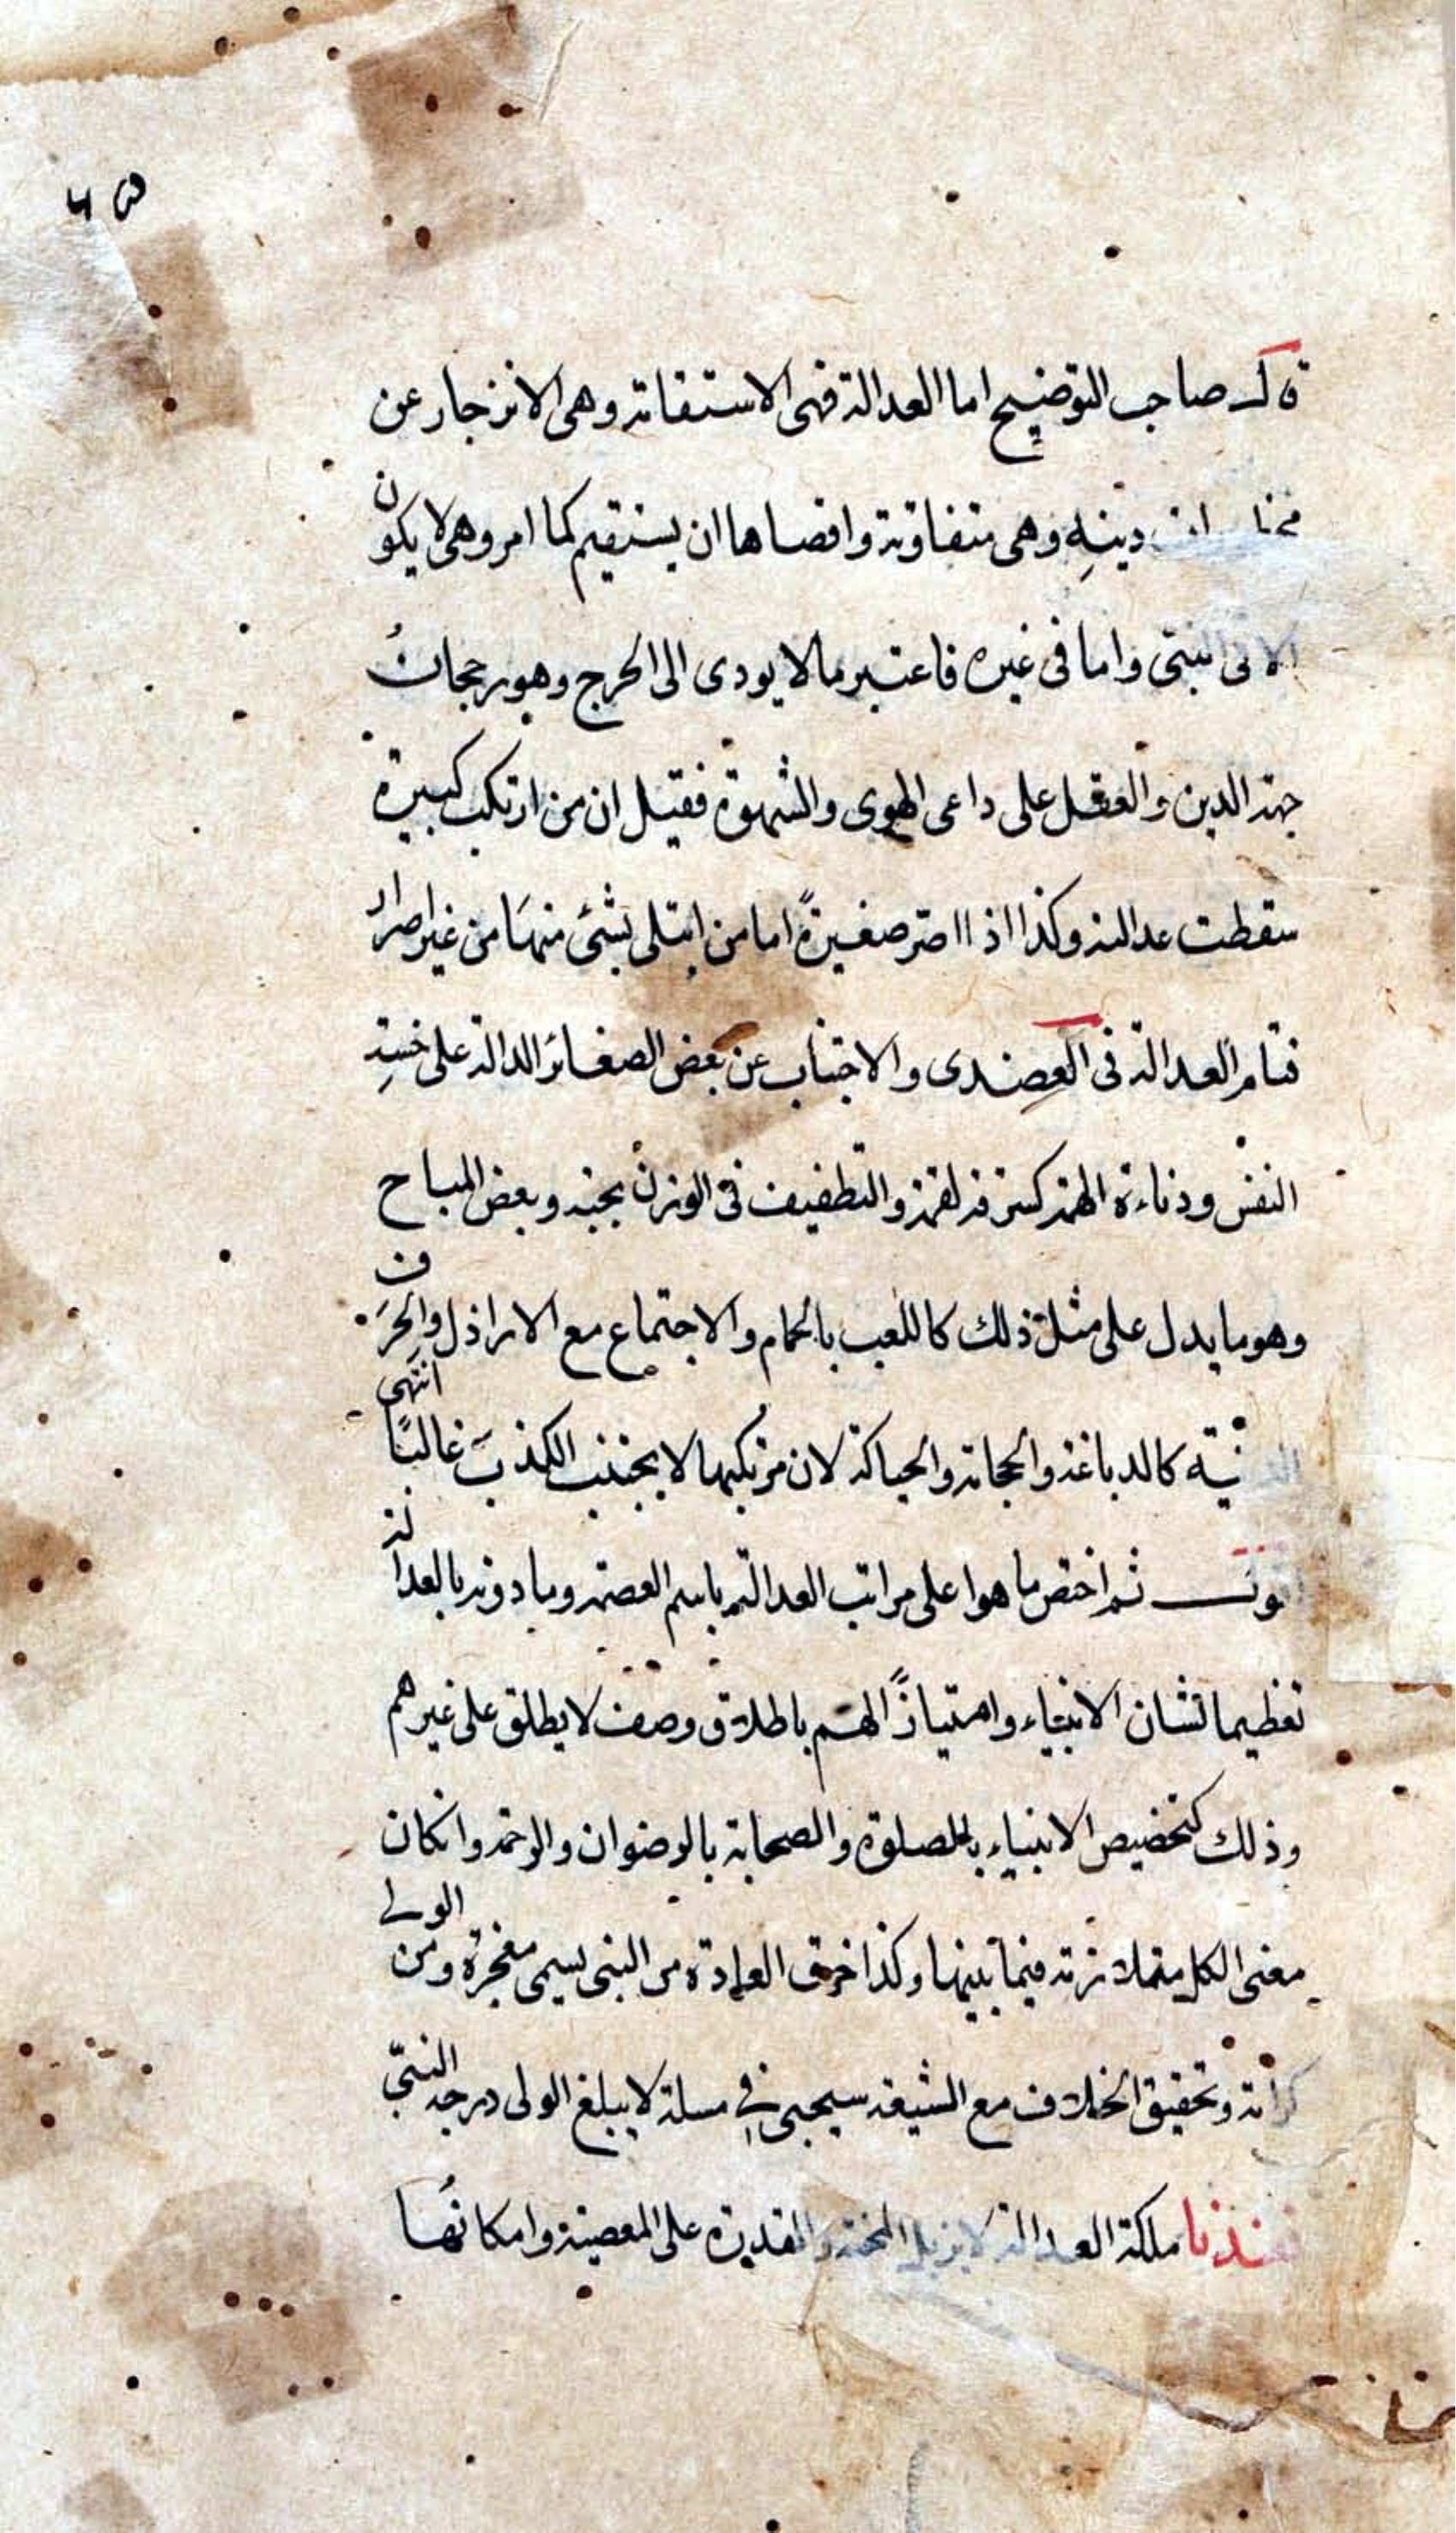 قال صاحب التوضيح اما العدالة فهى الاستقامة وهى الانزجار عن
دينهِ وهى متفاوتة واقصاها ان يستقيم كما امر وهى لا يكون
الا فى النبى واما فى غيره فاعتبر ما لا يودى الى الحرج وهو رجحان
جهة الدين والعقل على داعى الهوى والشهوة فقيل ان من ارتكب كبيرة
سقطت عدالته وكذا اذا اصر صغيرةً اما من ابتلى بشئ منها من غير اصرار
فتام العدالة فى العضدى والاجتناب عن بعض الصغائر الدالة على خسة
النفس ودناءة الهمة كسرقة لقمة والتطفيف فى الوزن بحبة وبعض المباح
وهو ما يدل على مثل ذلك كاللعب بالحمام والاجتماع مع الاراذل والحرف
الدنية كالدباغة والحجامة والحياكة لان مرتكبها لا يجتنب الكذب غالبًا انتهى
ثم اختص ما هو اعلى مراتب العدالة باسم العصمة وما دونه بالعدالة
تعظيما لشان الانبياء وامتيازًا لهم باطلاق وصف لا يطلق على غيرهم
وذلك كتخصيص الانبياء بالصلوة والصحابة بالرضوان والرحمة وانكان
معنى الكل متلازمة فيما بينها وكذا خرق العادة من النبى يسمى معجزة ومن الولى
كرامة وتحقيق الخلاف مع الشيعة سيجيى فى مسلة لا يبلغ الولى درجة النبىّ
ملكة العدالة لا يزيل المحنة والقدرة على المعصية وامكانها